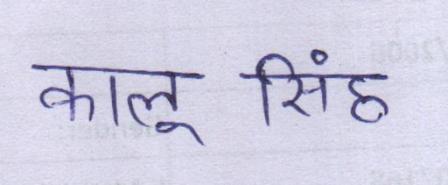 कालू सिंह